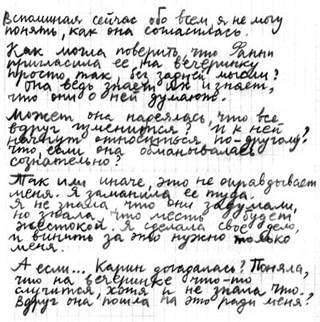 Вспоминая сейчас обо всем, я не могу
понять, как она согласилась.
Как могла поверить, что Фанни
пригласила ее на вечеринку
просто так, без задней мысли?
Она ведь знает их и знает,
что они о ней думают.
Может она надеялась, что все
вдруг изменится? И к ней
начнут относиться по-другому?
Что, если она обманывалась
сознательно?
Так или иначе, это не оправдывает
меня. Я заманила ее туда.
Я не знала, что они задумали,
но знала, что месть будет
жестокой. Я сделала свое дело,
и винить за это нужно только
меня.
А если... Карин догадалась? Поняла,
что на вечеринке что-то
случится, хотя и не знала что.
Вдруг она пошла на это ради меня?